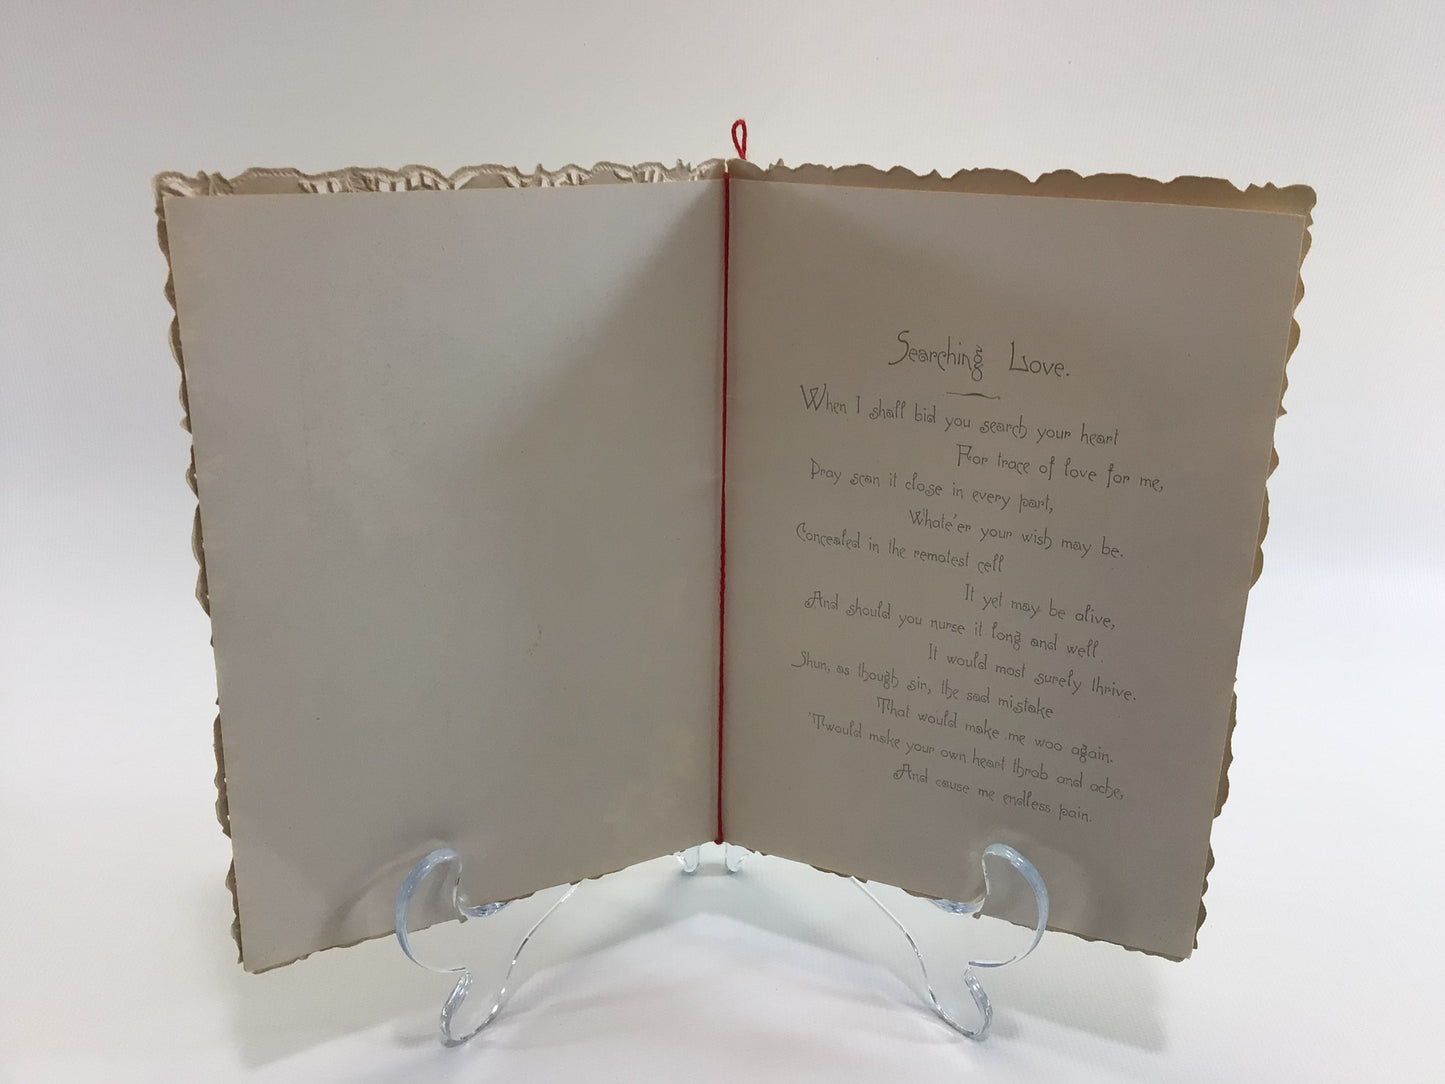 Searching Love.
When I shall bid you search your heart
For trace of love for me,
Pray scan it close in every part,
Whate'er your wish may be.
Concealed in the remotest cell
It yet may be alive,
And should you nurse it long and well
It would most surely thrive.
Shun, as though sin, the sad mistake
That would make me woo again.
'Twould make your own heart throb and ache,
And cause me endless pain.